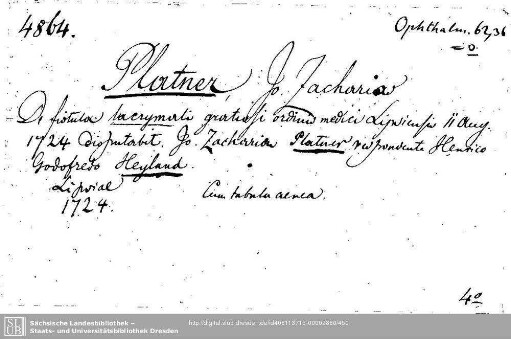 4864.
Ophthalm. 62,36
Platner, Jo. Zacharia
De fistula lacrymali gratiosi ordinis medici Lipsiensis 11 Aug.
1724 disputabit. Jo. Zacharia Platner respondente Henrico
Godofredo Heyland.
Lipsiae
Cum tabula aenea.
1724.
4o
SLUB
Sächsische Landesbibliothek –
Staats- und Universitätsbibliothek Dresden